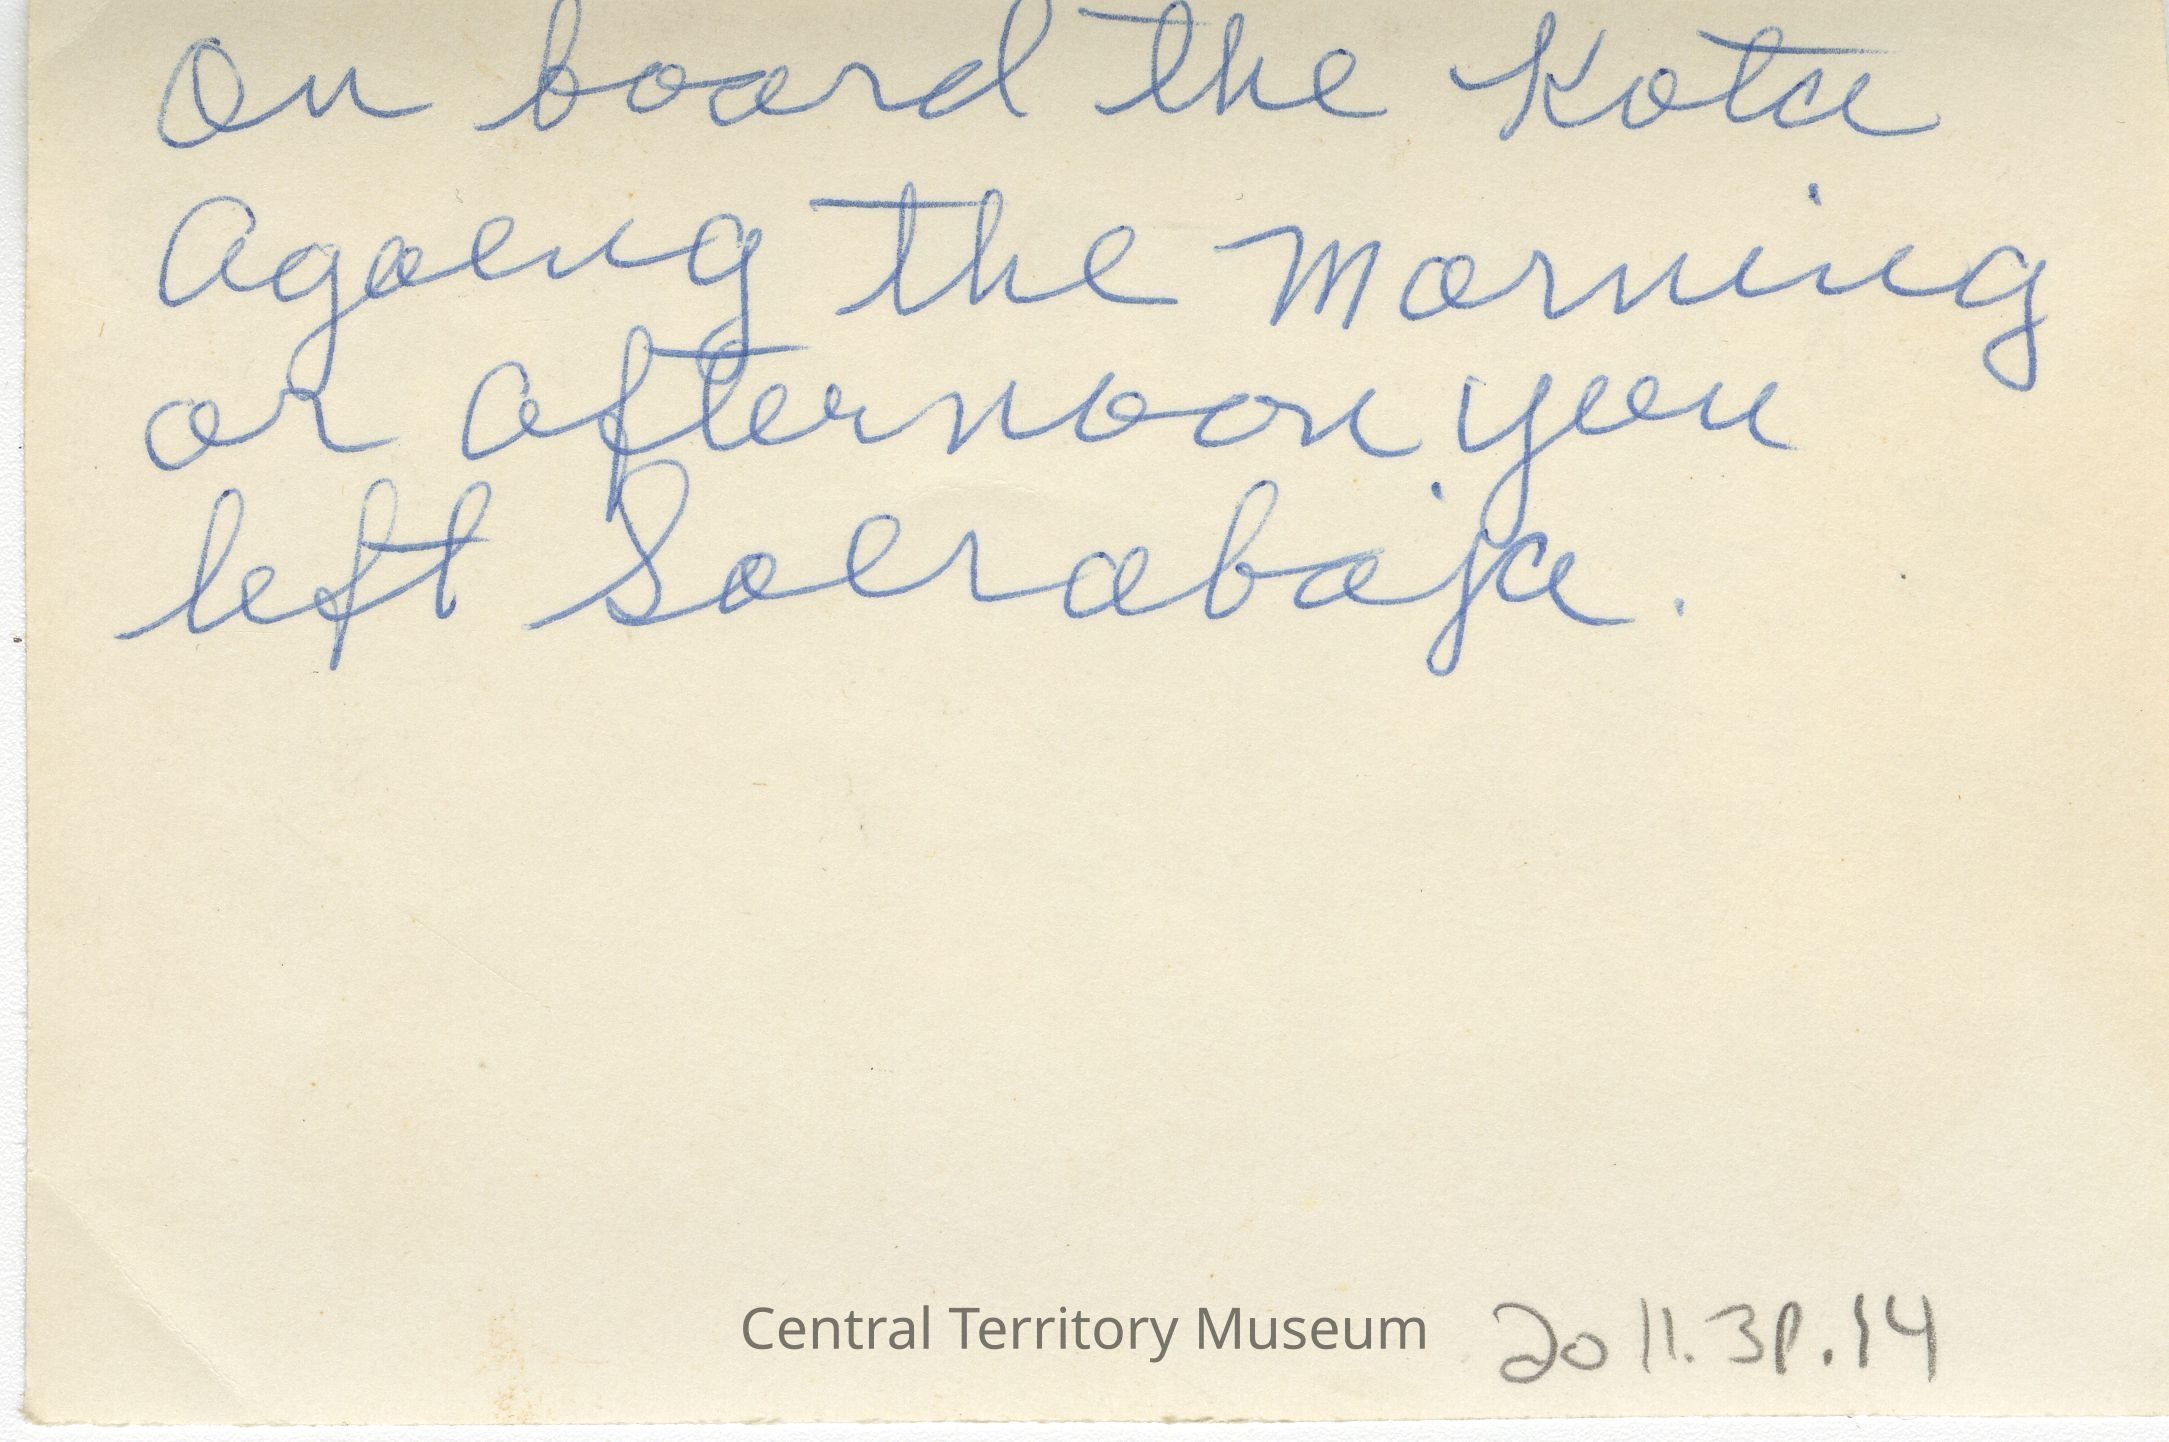 On board the Kota
Agoeng the morning
or afternoon you
left Soerabaja.
Central Territory Museum
2011.3P.14